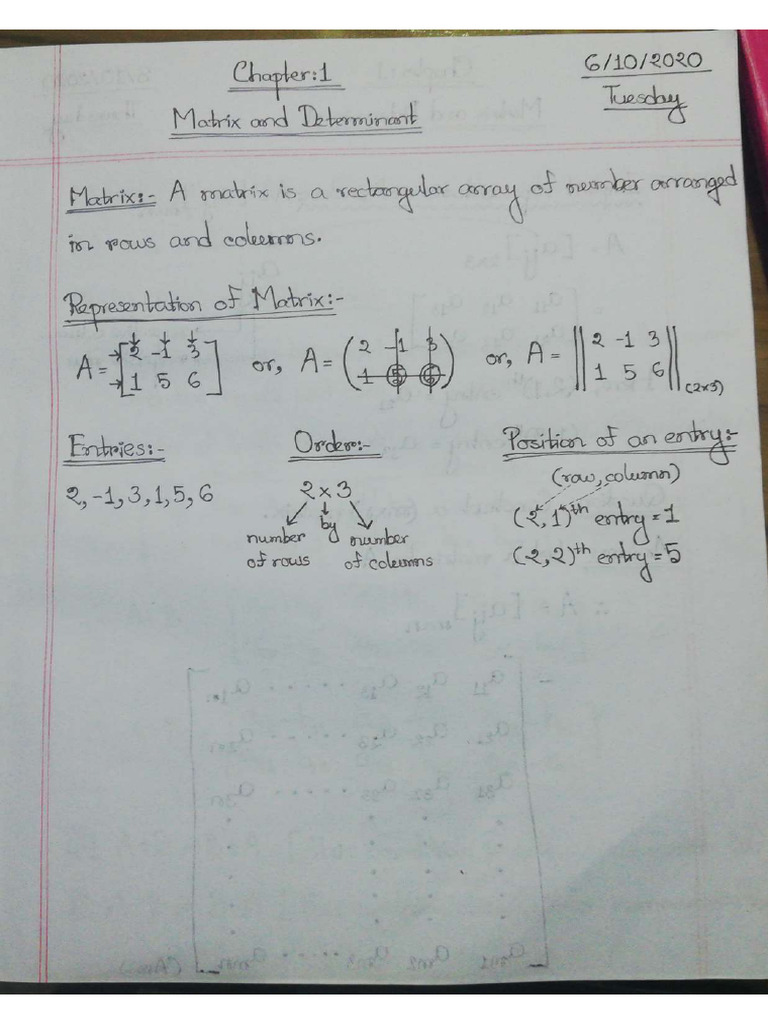 Chapter:1
6/10/2020
Matrix and Determinant
Tuesday
Matrix:- A matrix is a rectangular array of number arranged
in rows and columns.
Representation of Matrix:-
A = [2 -1 3 or, A = (2 -1 3 or, A = ||2 -1 3||
1 5 6] 1 5 6) 1 5 6|| (2x3)
Entries:- Order:- Position of an entry:-
(row, column)
2, -1, 3, 1, 5, 6 2 x 3 (2, 1)th entry = 1
number by number (2, 2)th entry = 5
of rows of columns